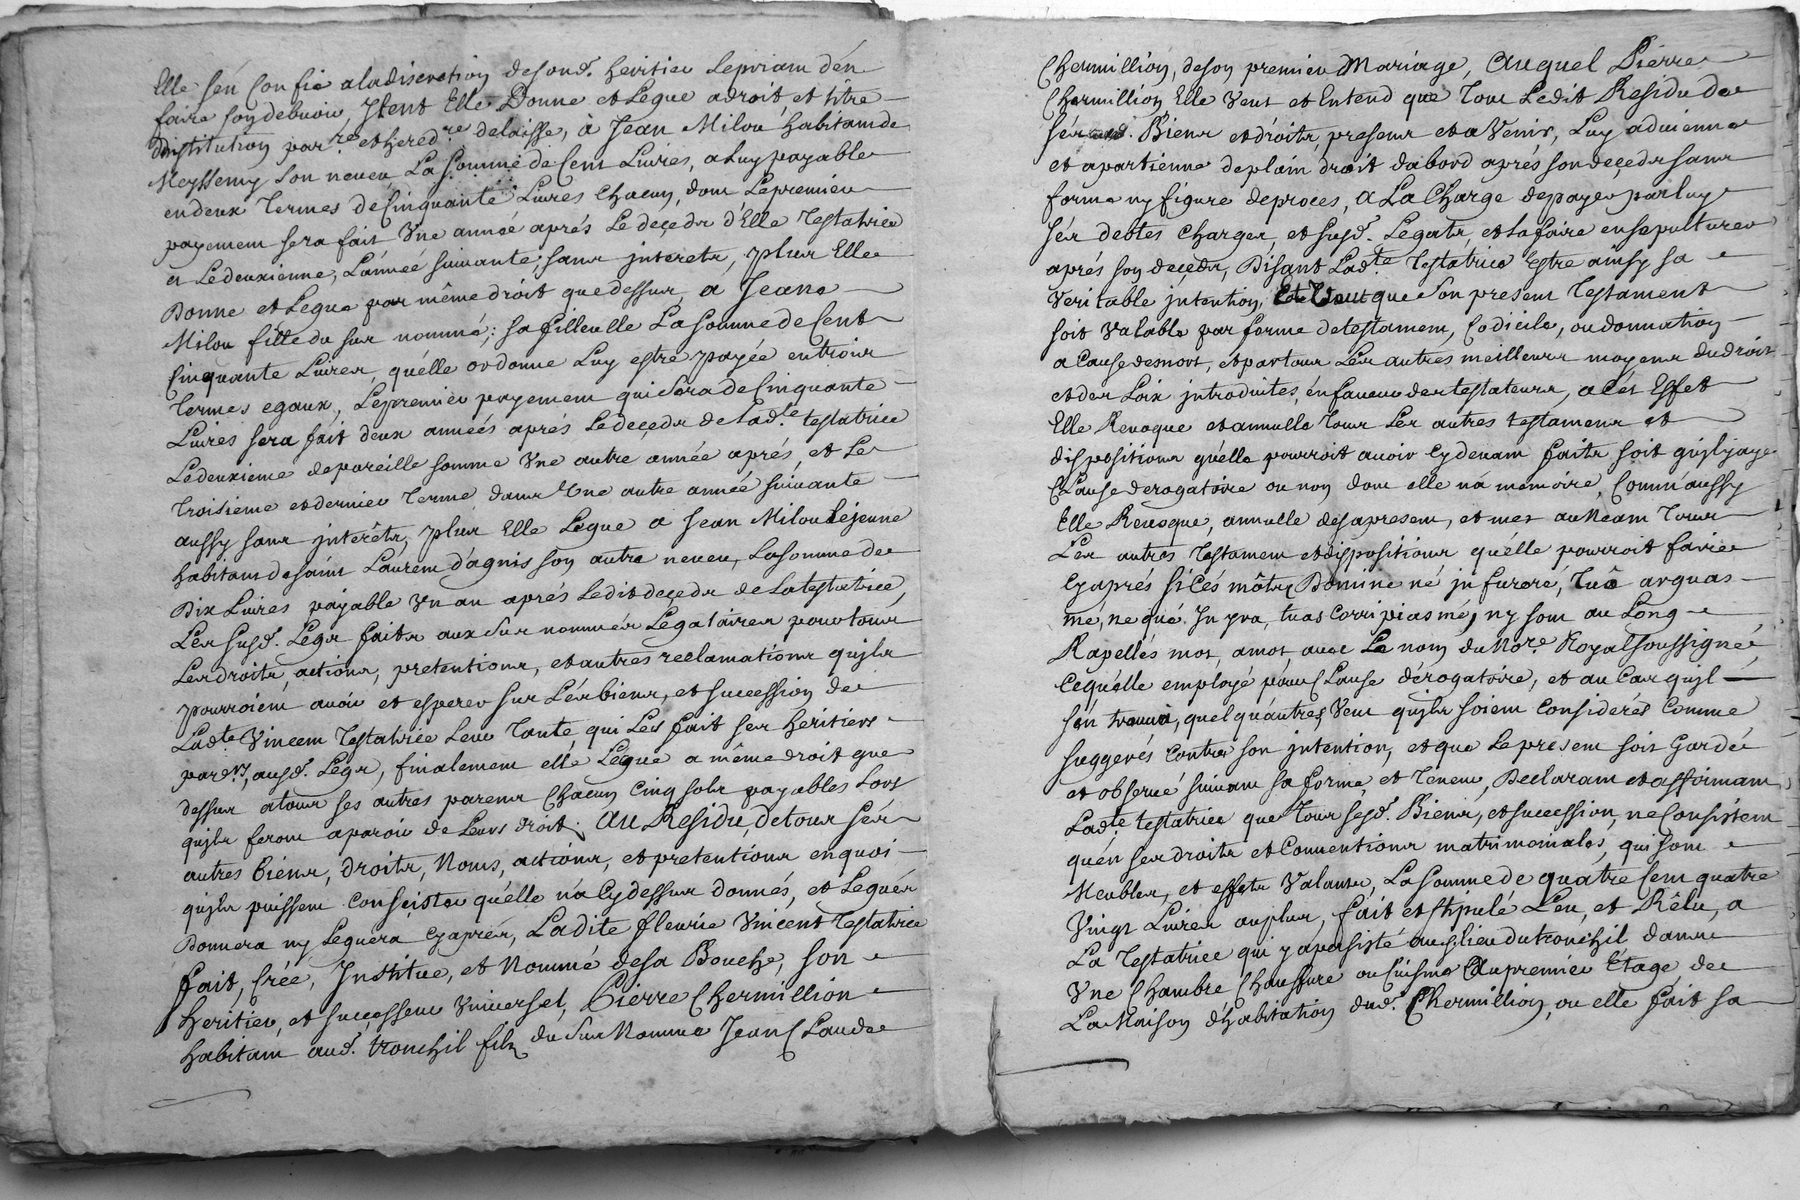 Elle s'én Confie aladiscretion desond. heritier Lepriam dén
faire son debvoir, Jtent Elle Donne et Legue adroit et titre
dinstitution par.re et hered.re delaisse, à Jean Milou habitam de
Meyssemy son neveu La somme de Cent Livres, a Luy payable
en deux Termes de Cinquante Livres Chacun, dont Lepremier
payement sera fait Vne année aprés Le deçeds d'Elle Testatrice
et Ledeuxienne, L'année suivante, sans interets, plus Elle
Donne et Legue par même droit que dessus, a Jeane
Milou fille du sus nommé; sa filleulle La somme de Cent
Cinquante Livres, qu'élle ordonne Luy estre payée entrois
Termes egaux, Lepremier payement qui sera de Cinquante
Livres sera fait deux années aprés Le deçeds de Lad.te testatrice
Ledeuxieme depareille somme Vne autre année aprés, et Le
Troisieme et dernier Terme dans Vne autre année suivante
aussy sans interêts, plus Elle Legue a Jean Milou Lejeune
habitant de saint Laurent d'agnis son autre neveu, La somme de
Dix Livres payable Vn an aprés Ledit deçeds de La testatrice,
Les susd. Legs faits aux sus nommés Legataires pour tous
Les droits, actions, pretentions, et autres reclamations qujls
pourroient avoir et esperer sur Lés biens, et succession de
Ladte Vincent Testatrice Leur Tante qui Les fait ses heritiers
pard.rs, ausd. Legs, finalement elle Legue a même droit que
dessus atous ses autres parens Chacun Cinq sols payables Lors
qujls feront aparoir de Leurs droit; Au Residu, de tous sés
autres biens, droits, Noms, actions, et pretentions en quoi
qujls puissent Consçister qu'élle n'a Cydessus donnés, et Legués
Donnera ny Leguera Cyaprés, Ladite fleurie Vincent Testatrice
fait, Crée, Institue, et Nommé desa Bouche, son
heritier, et successeur Vniversel, Pierre Chermillion
habitam aud. tronchil fils du sus Nommé Jean Claude
Chermillion, deson premier Mariage, Auquel Pierre
Chermillion Elle Veut et Entend que Tout Ledit Residu de
sés Biens et droits, presens et a Venir, Luy advienne
et apartienne de plain droit dabord aprés son deçeds sans
forme ny figure de proces, A La Charge de payer par luy
sés debtes Charges, et susd. Legats, et La faire ensepulturer
aprés son deçeds, Disant Ladte Testatrice Estre ainsy sa
Veritable intention, Et Veut que son present Testament
soit Valable par forme de testament, Codicile, ou donnation
a Cause de mort, et par tous Les autres meilleurs moyens du droit
et des Loix introduites, en faveur des testateurs, a Cét Effet
Elle Revoque et annulle Tous Les autres testamens et
dispositions qu'élle pourroit avoir Cydevam faits soit qujl y aye
Clause derogatoire ou non dont elle n'a memoire, Comm'aussy
Elle Revoque, annulle des apresent, et met au Neam Tous
Lés autres Testament et dispositions qu'élle pourroit faire
Cyaprés si Cés môts Domine né jn furoré, Tuô arguas
mé, ne qué Jn yra, tuas Corripias mé, ny sont au Long
Rapellés mot, amot, avec Le nom du No.re Royal soussigné,
Cequ'elle employé pour Clause dérogatoire, et au Cas qujl
s'en trouva, quelqu'autres Veut qujls soient Considerés Comme
suggerés Contre son intention, et que Le present soit Gardée
et observé suivam sa forme, et Teneur, Declaram et affirmam
Ladte testatrice que Tous sesd. Biens, et succession, ne Consistem
qu'en ses droits et Conventions matrimonialés, qui sont
Meubles, et effets Valants, La somme de quatre Cent quatre
Vingt Livres auplus, fait et stipulé Leu, et Rêlu, a
La Testatrice qui y apersisté ausd lieu dutronchil dans
Vne Chambre Chauffure ou Cuisine Aupremier Etage de
La Maison d'habitation dud. Chermillion, ou elle fait sa